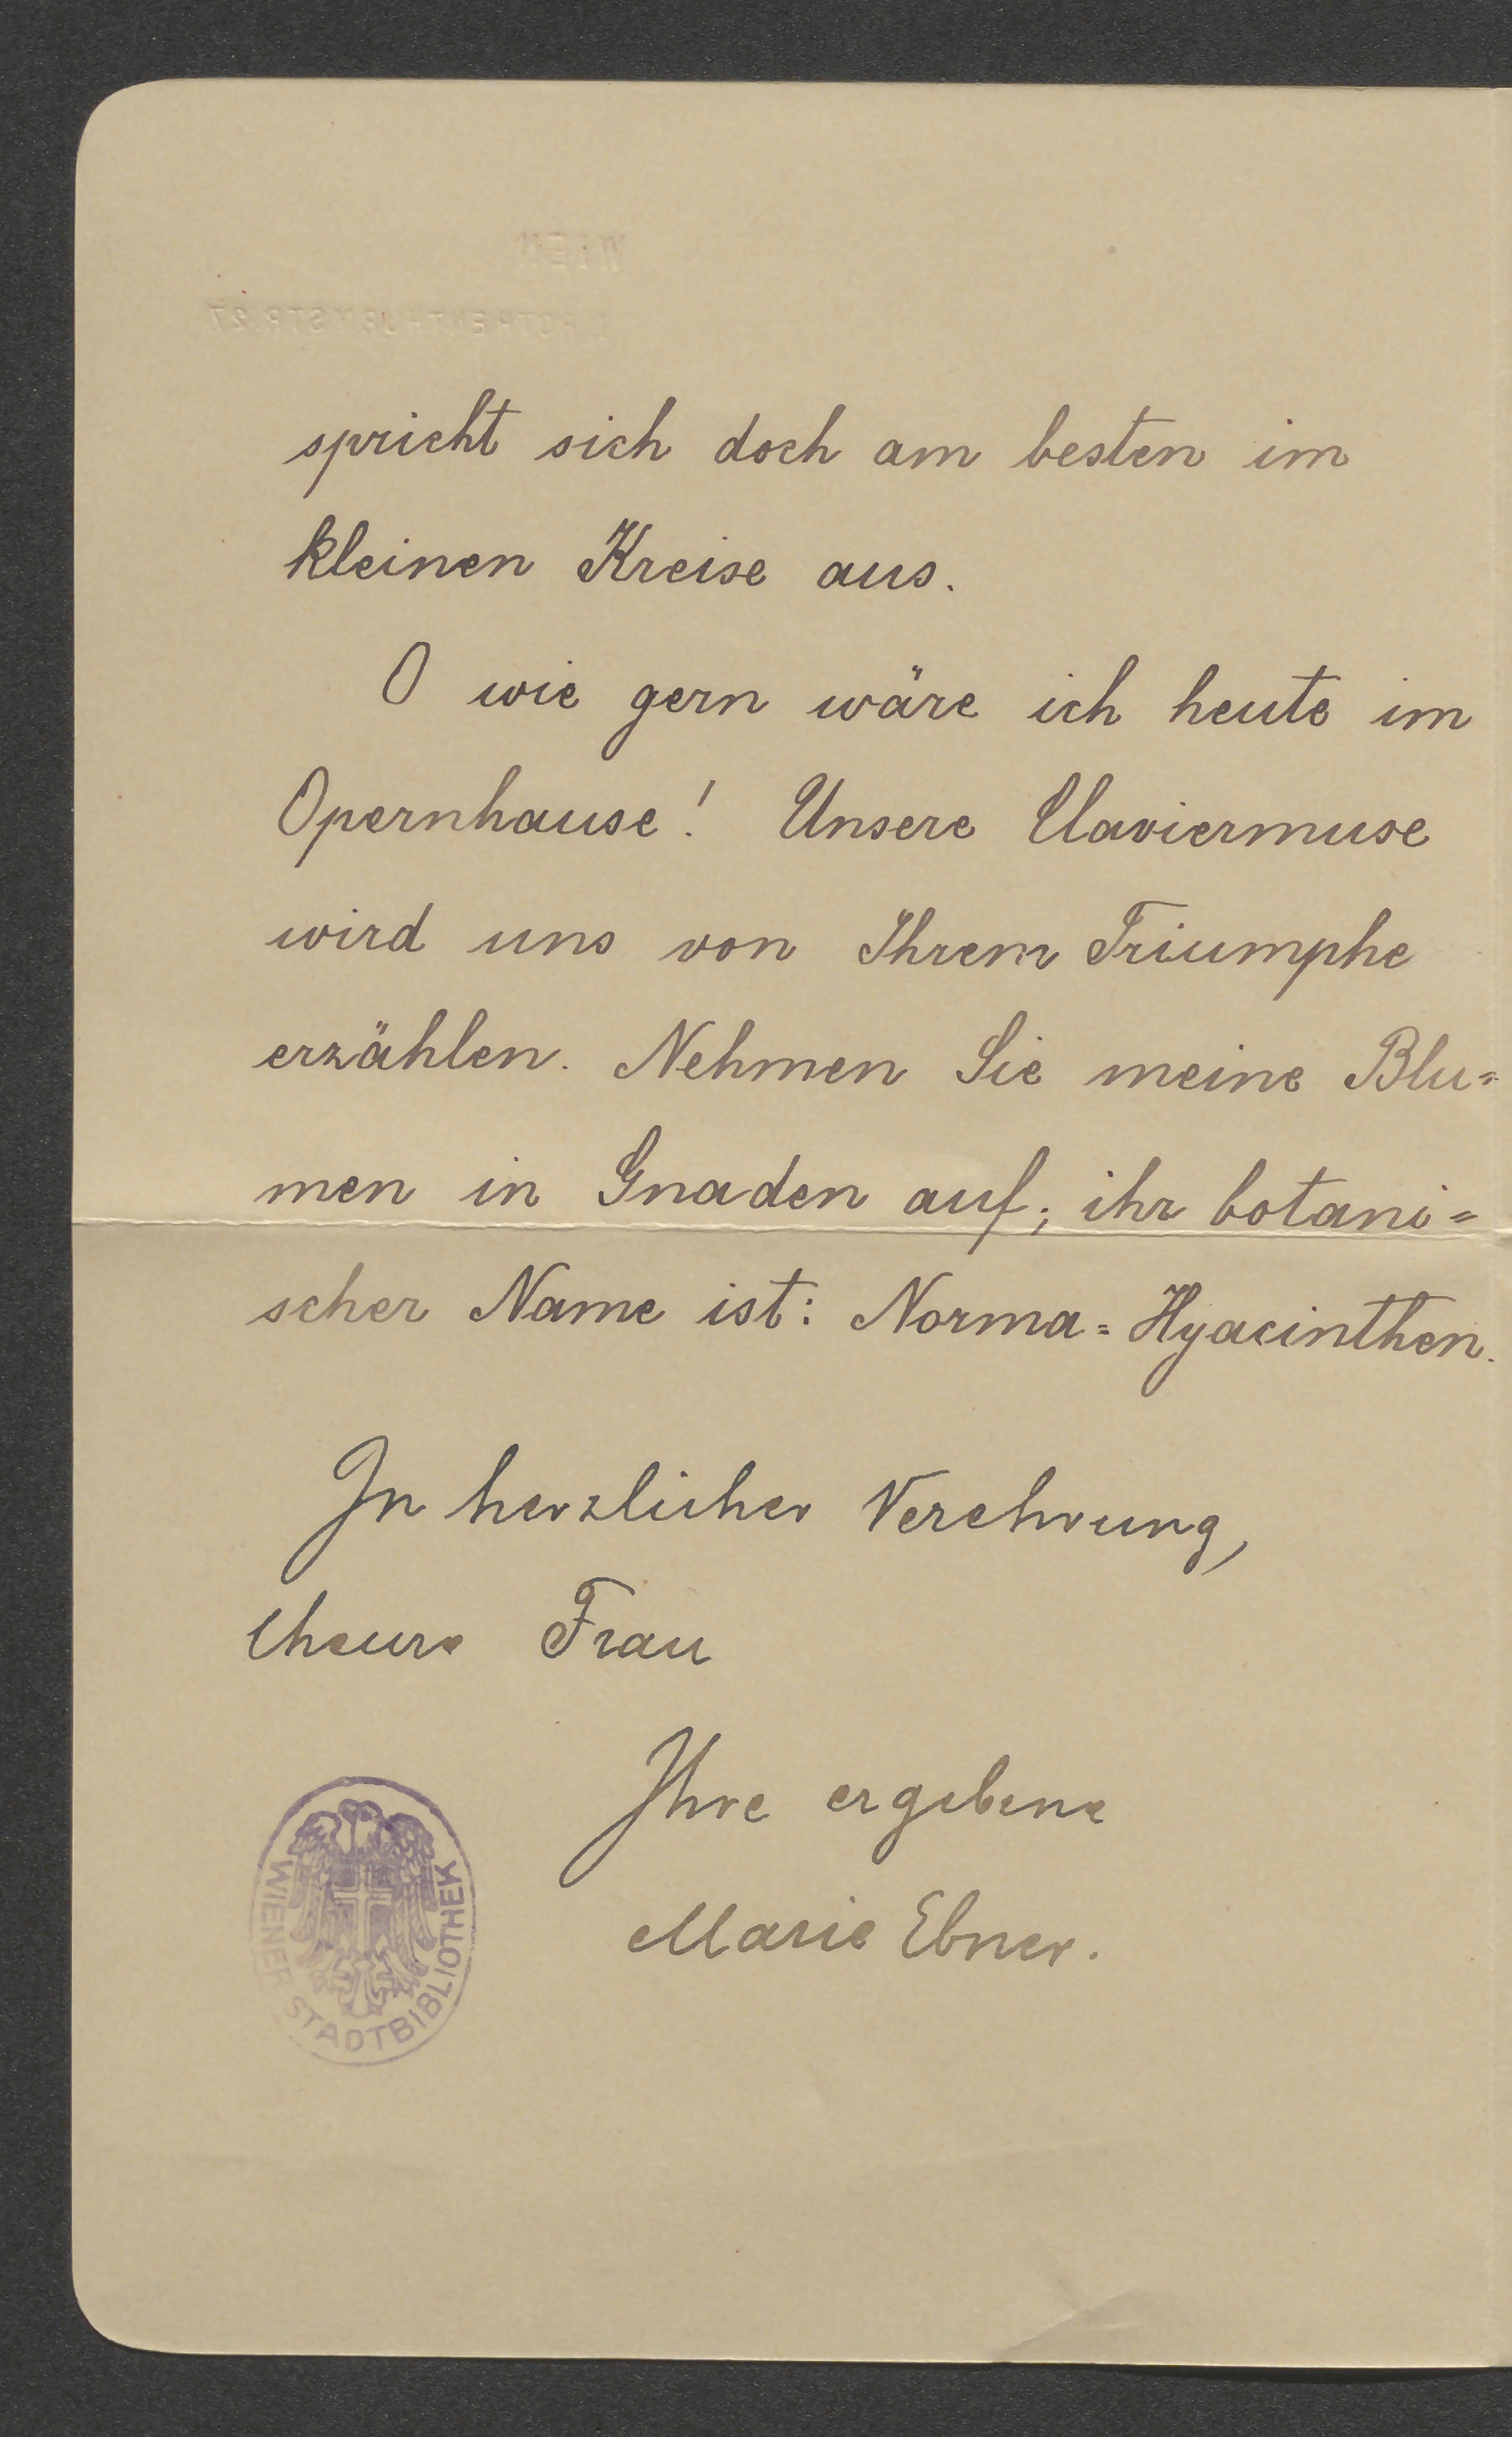 WIEN
I. ROTHENTHURMSTR. 27
spricht sich doch am besten im
kleinen Kreise aus.
O wie gern wäre ich heute im
Opernhause! Unsere Claviermuse
wird uns von Ihrem Triumphe
erzählen. Nehmen Sie meine Blu=
men in Gnaden auf; ihr botani=
scher Name ist: Norma=Hyacinthen.
In herzlicher Verehrung,
theure Frau
Ihre ergebene
Marie Ebner.
WIENER STADTBIBLIOTHEK